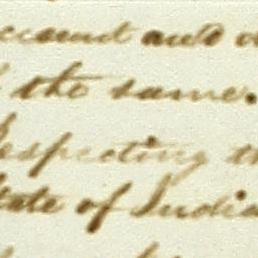 ccount and
the same.
Respecting th
State of India